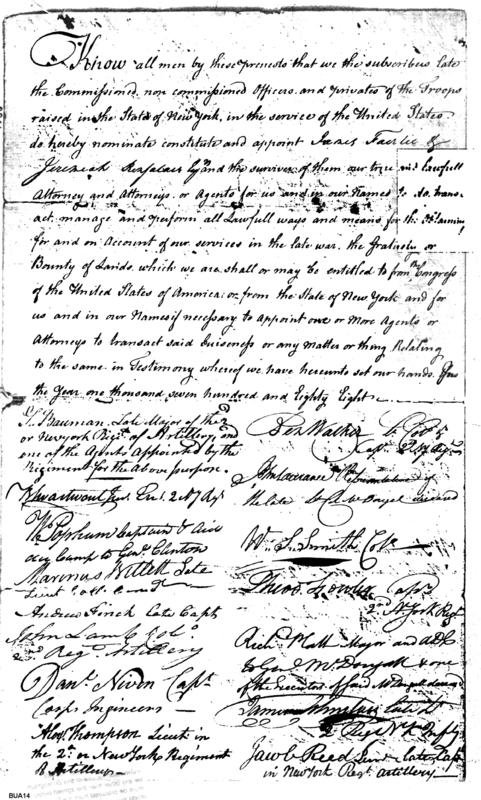 Know all men by these presents that we the subscribers late
the Commissioned, non commissioned Officers and privates of the Troops
raised in the State of New York, in the service of the United States
do hereby nominate constitute and appoint James Fairlie &
Jeremiah Renselaer Esqrs and the survivor of them our true and lawfull
Attorney and Attorneys or Agents for us and in our Names to do, trans-
act, manage and perform all Lawfull ways and means for the obtaining
for and on Account of our services in the late war, the gratuity or
Bounty of Lands which we are, shall or may be entitled to from the Congress
of the United States of America: or from the State of New York and for
us and in our Names if necessary to appoint one or More Agents or
Attorneys to transact said buisoness or any matter or thing Relating
to the same in Testimony whereof we have hereunto set our hands.
the Year one thousand seven hundred and Eighty Eight
S. Bauman Late Major of the 2d
or New york Regt of Artillery, and
one of the Agents Appointed by the
Regiment for the Above purpose.
Ens. 2 NY Regt
W Popham Captain & Aid
de Camp to Genl Clinton
Marinus Willett Late
Lieut Coll Comdt
Andrew Finck late Capt
John Lamb Colo
2nd Regt Artillery
Danl Niven Capt
Corps Engineers
Alexr Thompson Lieut in
the 2d or New York Regiment
of Artillery
Ben Walker
Capt 2 NY Regt
John Lawrance Representative of
the late deceased
Wm S. Smith Colo
Theos Fowler Capt
2d N York Regt
Richd Platt Major and ADC
to Genl McDougall & one
of the Executors of said McDougall deceased
late Lt
2 Regt NY Infty
Jacob Reed Junr late Capt
in New York Regt Artillery
BUA14